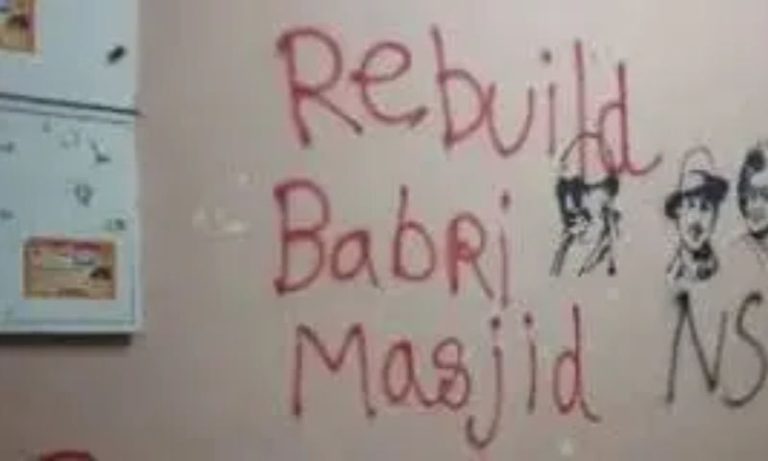 Rebuild
Babri
Masjid
NS